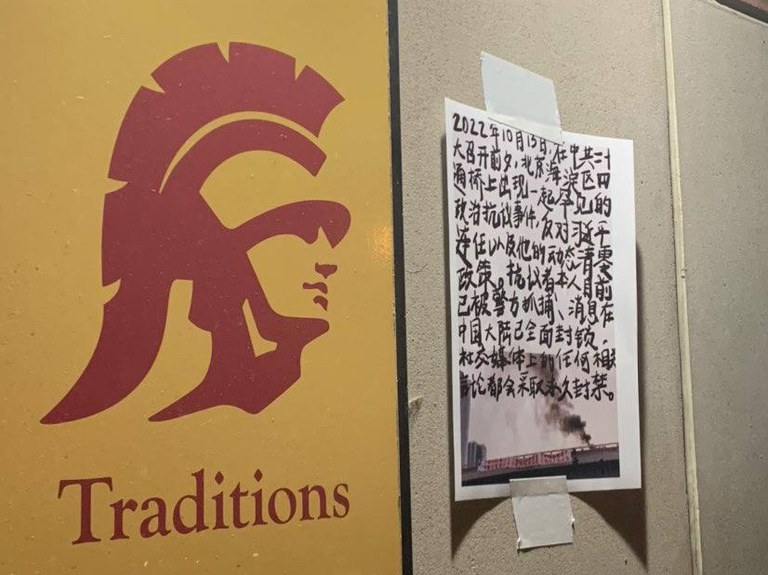 Traditions
2022年10月13日,在中共二十
大召开前夕,北京海淀区四
通桥上出现一起罕见的
政治抗议事件,反对习近平
连任以及他的动态清零
政策。抗议者本人目前
已被警方抓捕、消息在
中国大陆已全面封锁,
社交媒体上的任何相关
言论都会采取永久封禁。